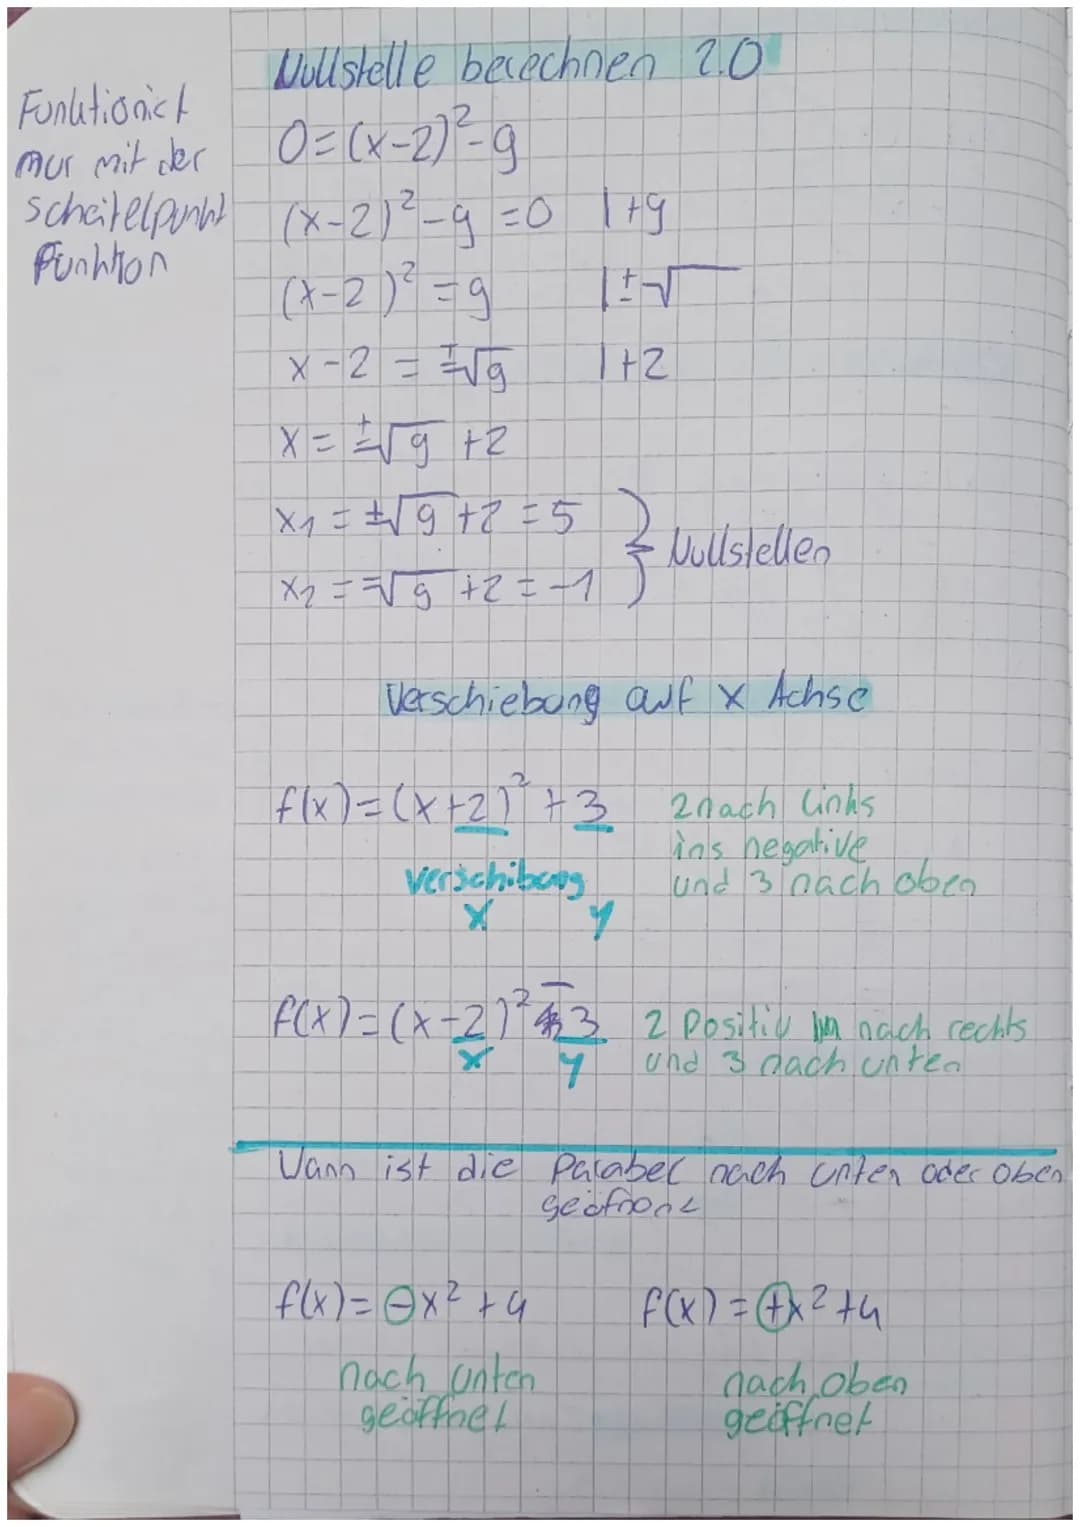 Nullstelle berechnen 2.0
Funktioniert
nur mit der
scheitelpunkt
Funktion
0=(x-2)²-9
(x-2)²-9=0 |+9
(x-2)²=9 |±√
x-2=±√9 |+2
x=±√9+2
x₁=±√9+2=5
x₂=-√9+2=-1
} Nullstellen
Verschiebung auf x Achse
f(x)=(x+2)²+3 2 nach links
ins negative
verschibung und 3 nach oben
x y
f(x)=(x-2)²-3 2 Positiv nach rechts
x y und 3 nach unten
Wann ist die Parabel nach unten oder oben
f(x)=-x²+4 f(x)=+x²+4
nach unten nach oben
geöffnet geöffnet